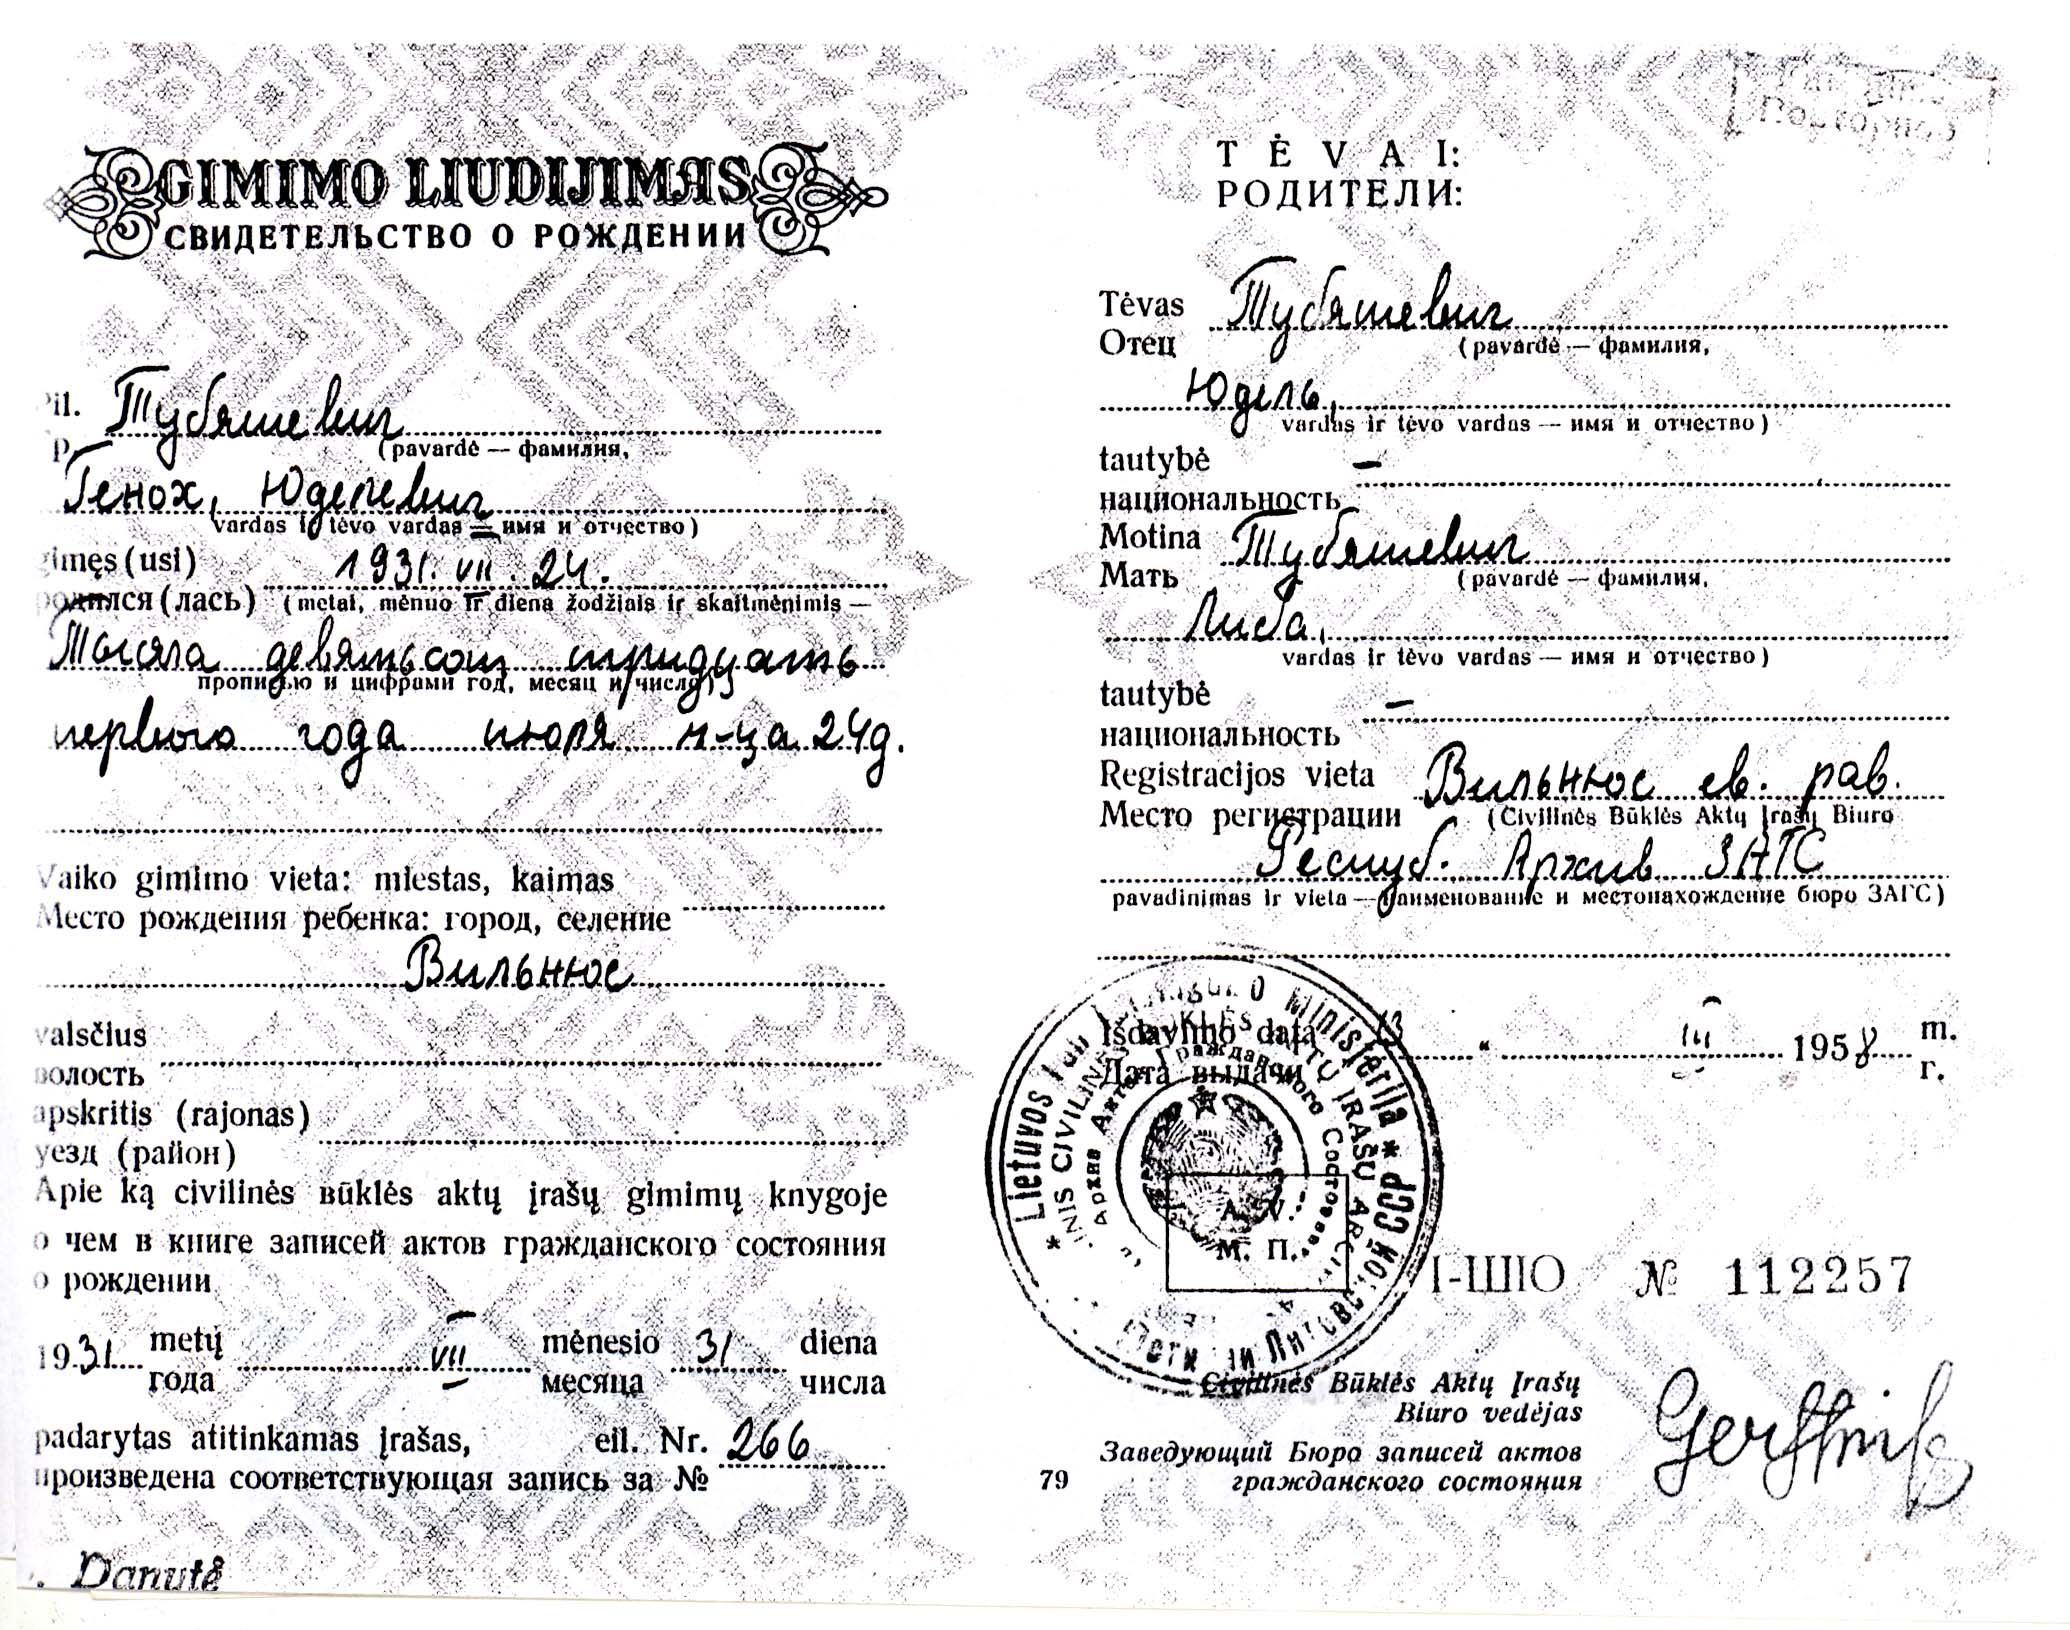 GIMIMO LIUDIJIMAS
СВИДЕТЕЛЬСТВО О РОЖДЕНИИ
Pil. Тубяшевич
Гр.
(pavardė — фамилия,
Генох, Юделевич
vardas ir tėvo vardas — имя и отчество)
gimęs (usi) 1931. VII. 24.
родился (лась) (metai, mėnuo ir diena žodžiais ir skaitmenimis —
Тысяча девятьсот тридцать
прописью и цифрами год, месяц и число)
первого года июля м-ца 24д.
Vaiko gimimo vieta: miestas, kaimas
Место рождения ребенка: город, селение
Вильнюс
valsčius
волость
apskritis (rajonas)
уезд (район)
Apie ką civilinės būklės aktų įrašų gimimų knygoje
о чем в книге записей актов гражданского состояния
о рождении
1931 metų VII mėnesio 31 diena
года месяца числа
padarytas atitinkamas įrašas, eil. Nr. 266
произведена соответствующая запись за №
Danutė
Повторное
TĖVAI:
РОДИТЕЛИ:
Tėvas Тубяшевич
Отец (pavardė — фамилия,
Юдель,
vardas ir tėvo vardas — имя и отчество)
tautybė —
национальность
Motina Тубяшевич
Мать (pavardė — фамилия,
Либа,
vardas ir tėvo vardas — имя и отчество)
tautybė —
национальность
Registracijos vieta Вильнюс ев. рав.
Место регистрации (Civilinės Būklės Aktų Įrašų Biuro
Респуб. Архив ЗАГС
pavadinimas ir vieta — наименование и местонахождение бюро ЗАГС)
Išdavimo data 13 " III 1958 m.
Дата выдачи г.
Lietuvos Ministerija * ССР
CIVILINĖS BŪKLĖS AKTŲ ĮRAŠŲ
Архив Актов Гражданского
A. V.
М. П.
I-ШЮ № 112257
Civilinės Būklės Aktų Įrašų
Biuro vedėjas
Заведующий Бюро записей актов
гражданского состояния
79